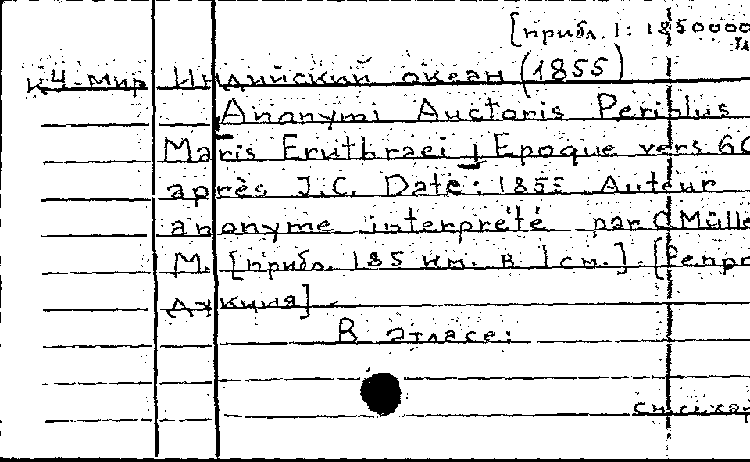 [прибл. 1: 1850000
К4-мир Индийский океан (1855)
Anonymi Auctoris Periplus
Maris Eruthraei] Epoque vers 60
après J.C. Date: 1855 Auteur
anonyme interprété par C Mülle
М. [прибл. 185 км. в 1 см.]. [Репро
дукция]
В атласе:
См. след. кар